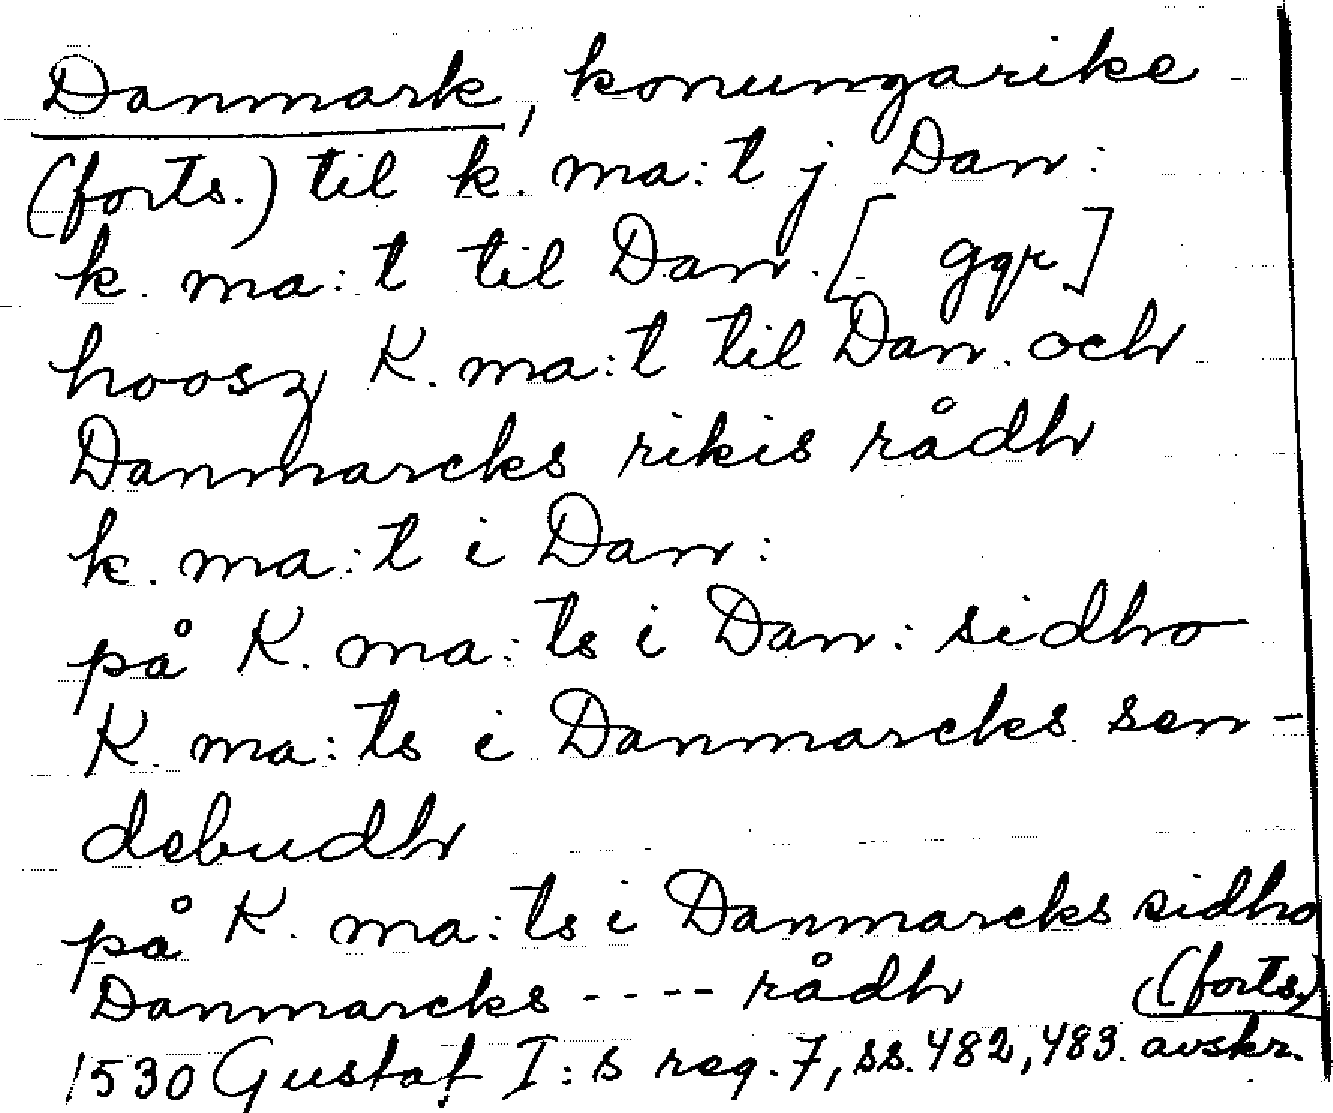 Danmark, konungarike
(forts.) til k. ma:t j Dan:
k. ma:t til Dan. [ ggr]
hoosz K. ma:t til Dan. och
Danmarcks rikis rådh
k. ma:t i Dan:
på K. ma:ts i Dan: sidho
K. ma:ts i Danmarcks sen-
debudh
på K. ma:ts i Danmarcks sidho
Danmarcks ---- rådh (forts.)
1530 Gustaf I:s reg. 7, ss. 482, 483. avskr.